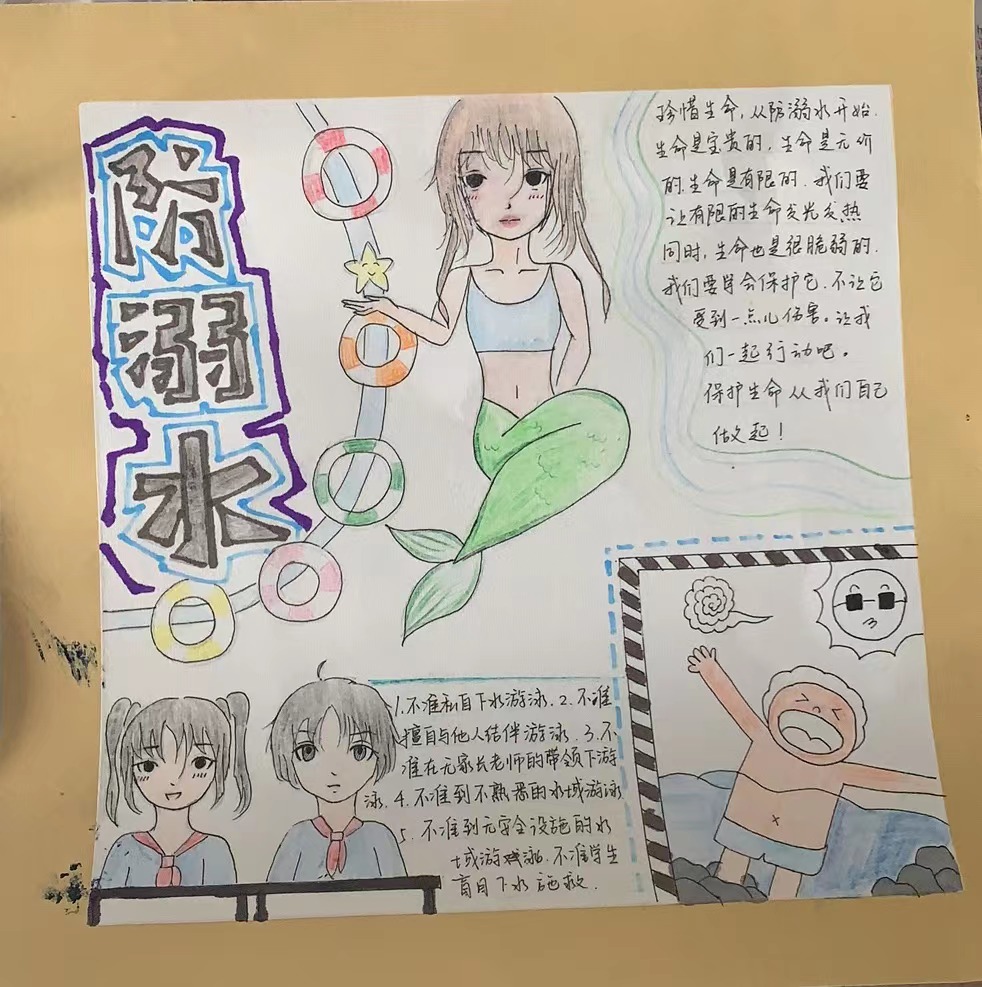 防
溺
水
珍惜生命，从防溺水开始.
生命是宝贵的，生命是无价
的.生命是有限的.我们要
让有限的生命发光发热
同时，生命也是很脆弱的.
我们要学会保护它.不让它
受到一点儿伤害。让我
们一起行动吧。
保护生命从我们自己
做起！
1.不准私自下水游泳.2.不准
擅自与他人结伴游泳.3.不
准在无家长老师的带领下游
泳.4.不准到不熟悉的水域游泳
5.不准到无安全设施的水
域游泳.不准学生
盲目下水施救.